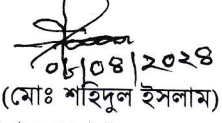 ০৮/০৪/২০২৪
(মোঃ শহিদুল ইসলাম)